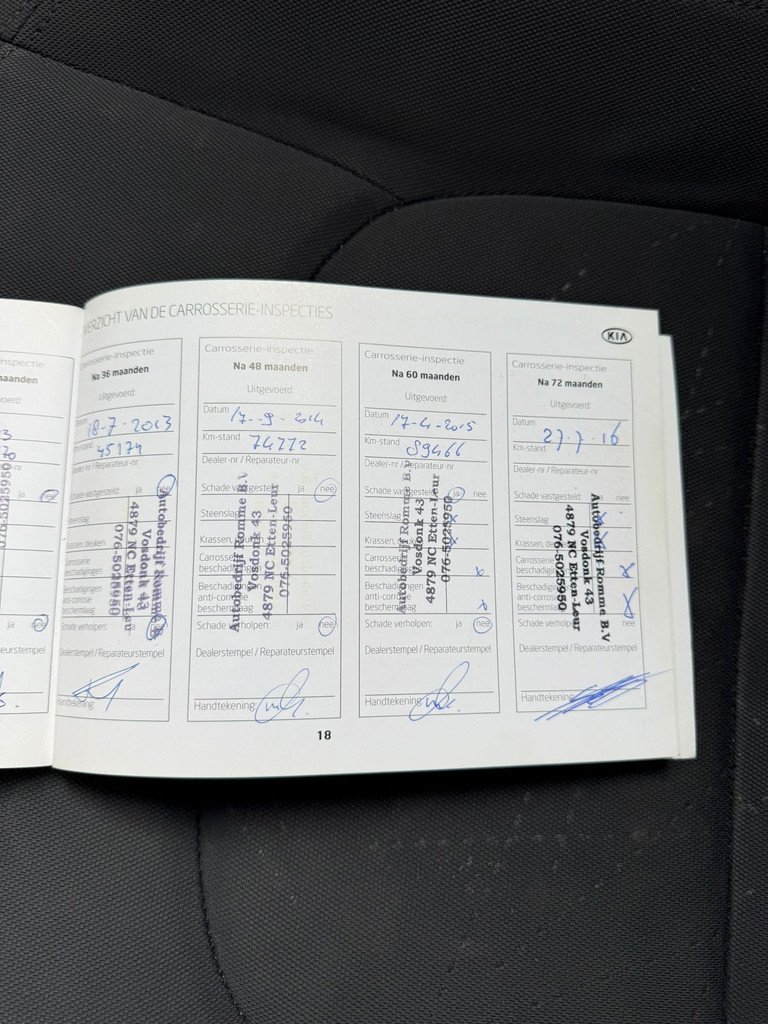 VERZICHT VAN DE CARROSSERIE-INSPECTIES
KIA
nspectie
maanden
voerd:
ja nee
ja nee
eurstempel
Carrosserie-inspectie
Na 36 maanden
Uitgevoerd:
Datum 18-7-2013
Km-stand 45174
Dealer-nr / Reparateur-nr
Schade vastgesteld: nee
Steenslag
Krassen, deuken
Carrosserie
beschadigingen
Beschadigingen
anti-corrosie
beschermlaag
Schade verholpen: nee
Dealerstempel / Reparateurstempel
Handtekening:
Autobedrijf Romme B
Vosdonk 43
4879 NC Etten-Leur
076-5025950
Carrosserie-inspectie
Na 48 maanden
Uitgevoerd:
Datum 17-9-2014
Km-stand 74772
Dealer-nr / Reparateur-nr
Schade vastgesteld: ja nee
Steenslag
Krassen, deuken
Carrosserie
beschadigingen
Beschadigingen
anti-corrosie
beschermlaag
Schade verholpen: ja nee
Dealerstempel / Reparateurstempel
Handtekening:
Autobedrijf Romme B.V
Vosdonk 43
4879 NC Etten-Leur
076-5025950
Carrosserie-inspectie
Na 60 maanden
Uitgevoerd:
Datum 17-4-2015
Km-stand 89466
Dealer-nr / Reparateur-nr
Schade vastgesteld: ja nee
Steenslag x
Krassen, deuken x
Carrosserie
beschadigingen x
Beschadigingen
anti-corrosie
beschermlaag x
Schade verholpen: ja nee
Dealerstempel / Reparateurstempel
Handtekening:
Autobedrijf Romme B.V
Vosdonk 43
4879 NC Etten-Leur
076-5025950
Carrosserie-inspectie
Na 72 maanden
Uitgevoerd:
Datum 27-7-16
Km-stand
Dealer-nr / Reparateur-nr
Schade vastgesteld: ja nee
Steenslag x
Krassen, deuken x
Carrosserie
beschadigingen x
Beschadigingen
anti-corrosie
beschermlaag x
Schade verholpen: ja nee
Dealerstempel / Reparateurstempel
Handtekening:
Autobedrijf Romme B.V
Vosdonk 43
4879 NC Etten-Leur
076-5025950
18